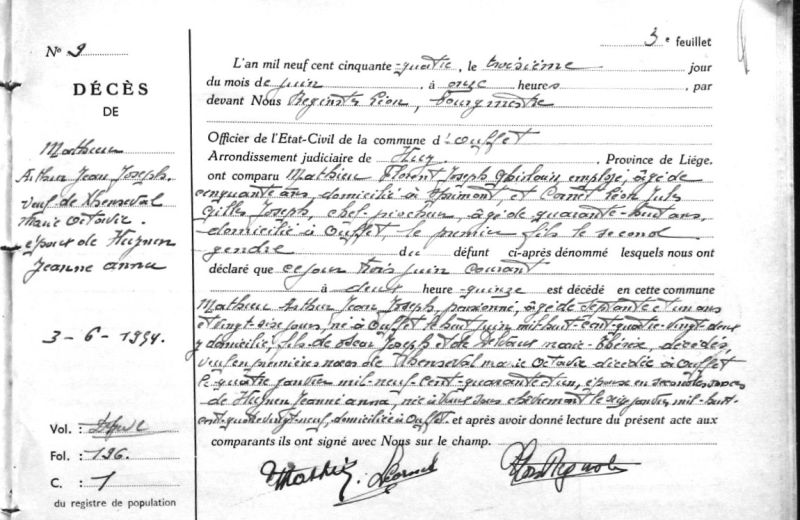 3e feuillet
No 9
DÉCÈS
DE
Mathieu
Arthur Jean Joseph
veuf de Thenseval
Marie Octavie.
époux de Hugnen
Jeanne Anna
3-6-1954.
Vol. :
Fol. : 196.
C. : 1
du registre de population
L'an mil neuf cent cinquante-quatre, le troisième jour
du mois de juin, à onze heures, par
devant Nous Reginster Léon, bourgmestre
Officier de l'Etat-Civil de la commune d'Ouffet
Arrondissement judiciaire de Huy. Province de Liége.
ont comparu Mathieu Florent Joseph Ghislain, employé, âgé de
cinquante ans, domicilié à Sprimont, et Cornet Léon Jules
Gilles Joseph, chef-piocheur, âgé de quarante-huit ans,
domicilié à Ouffet, le premier fils le second
gendre du défunt ci-après dénommé lesquels nous ont
déclaré que ce jour trois juin courant
à deux heure quinze est décédé en cette commune
Mathieu Arthur Jean Joseph, pensionné, âgé de septante et un ans
et vingt-six jours, né à Ouffet le huit juin mil-huit-cent-quatre-vingt-deux
y domicilié, fils de Oscar Joseph et de Marie-Thérèse, décédés,
veuf en premières noces de Thenseval Marie Octavie décédée à Ouffet
le quatre janvier mil-neuf-cent-quarante et un, époux en secondes noces
de Hugnen Jeanne Anna, née à janvier mil-huit-
cent-quatre-vingt-neuf, domiciliée à Ouffet. et après avoir donné lecture du présent acte aux
comparants ils ont signé avec Nous sur le champ.
Mathieu. LCornet